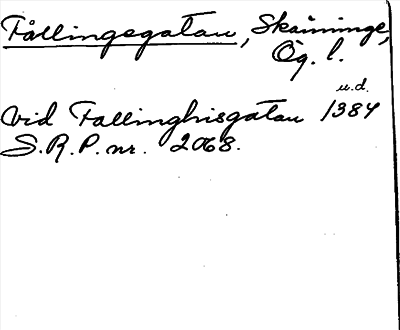 Fållingegatan, Skänninge,
Ög. l.
u.d.
vid Fallinghisgatan 1384
S.R.P. nr. 2068.